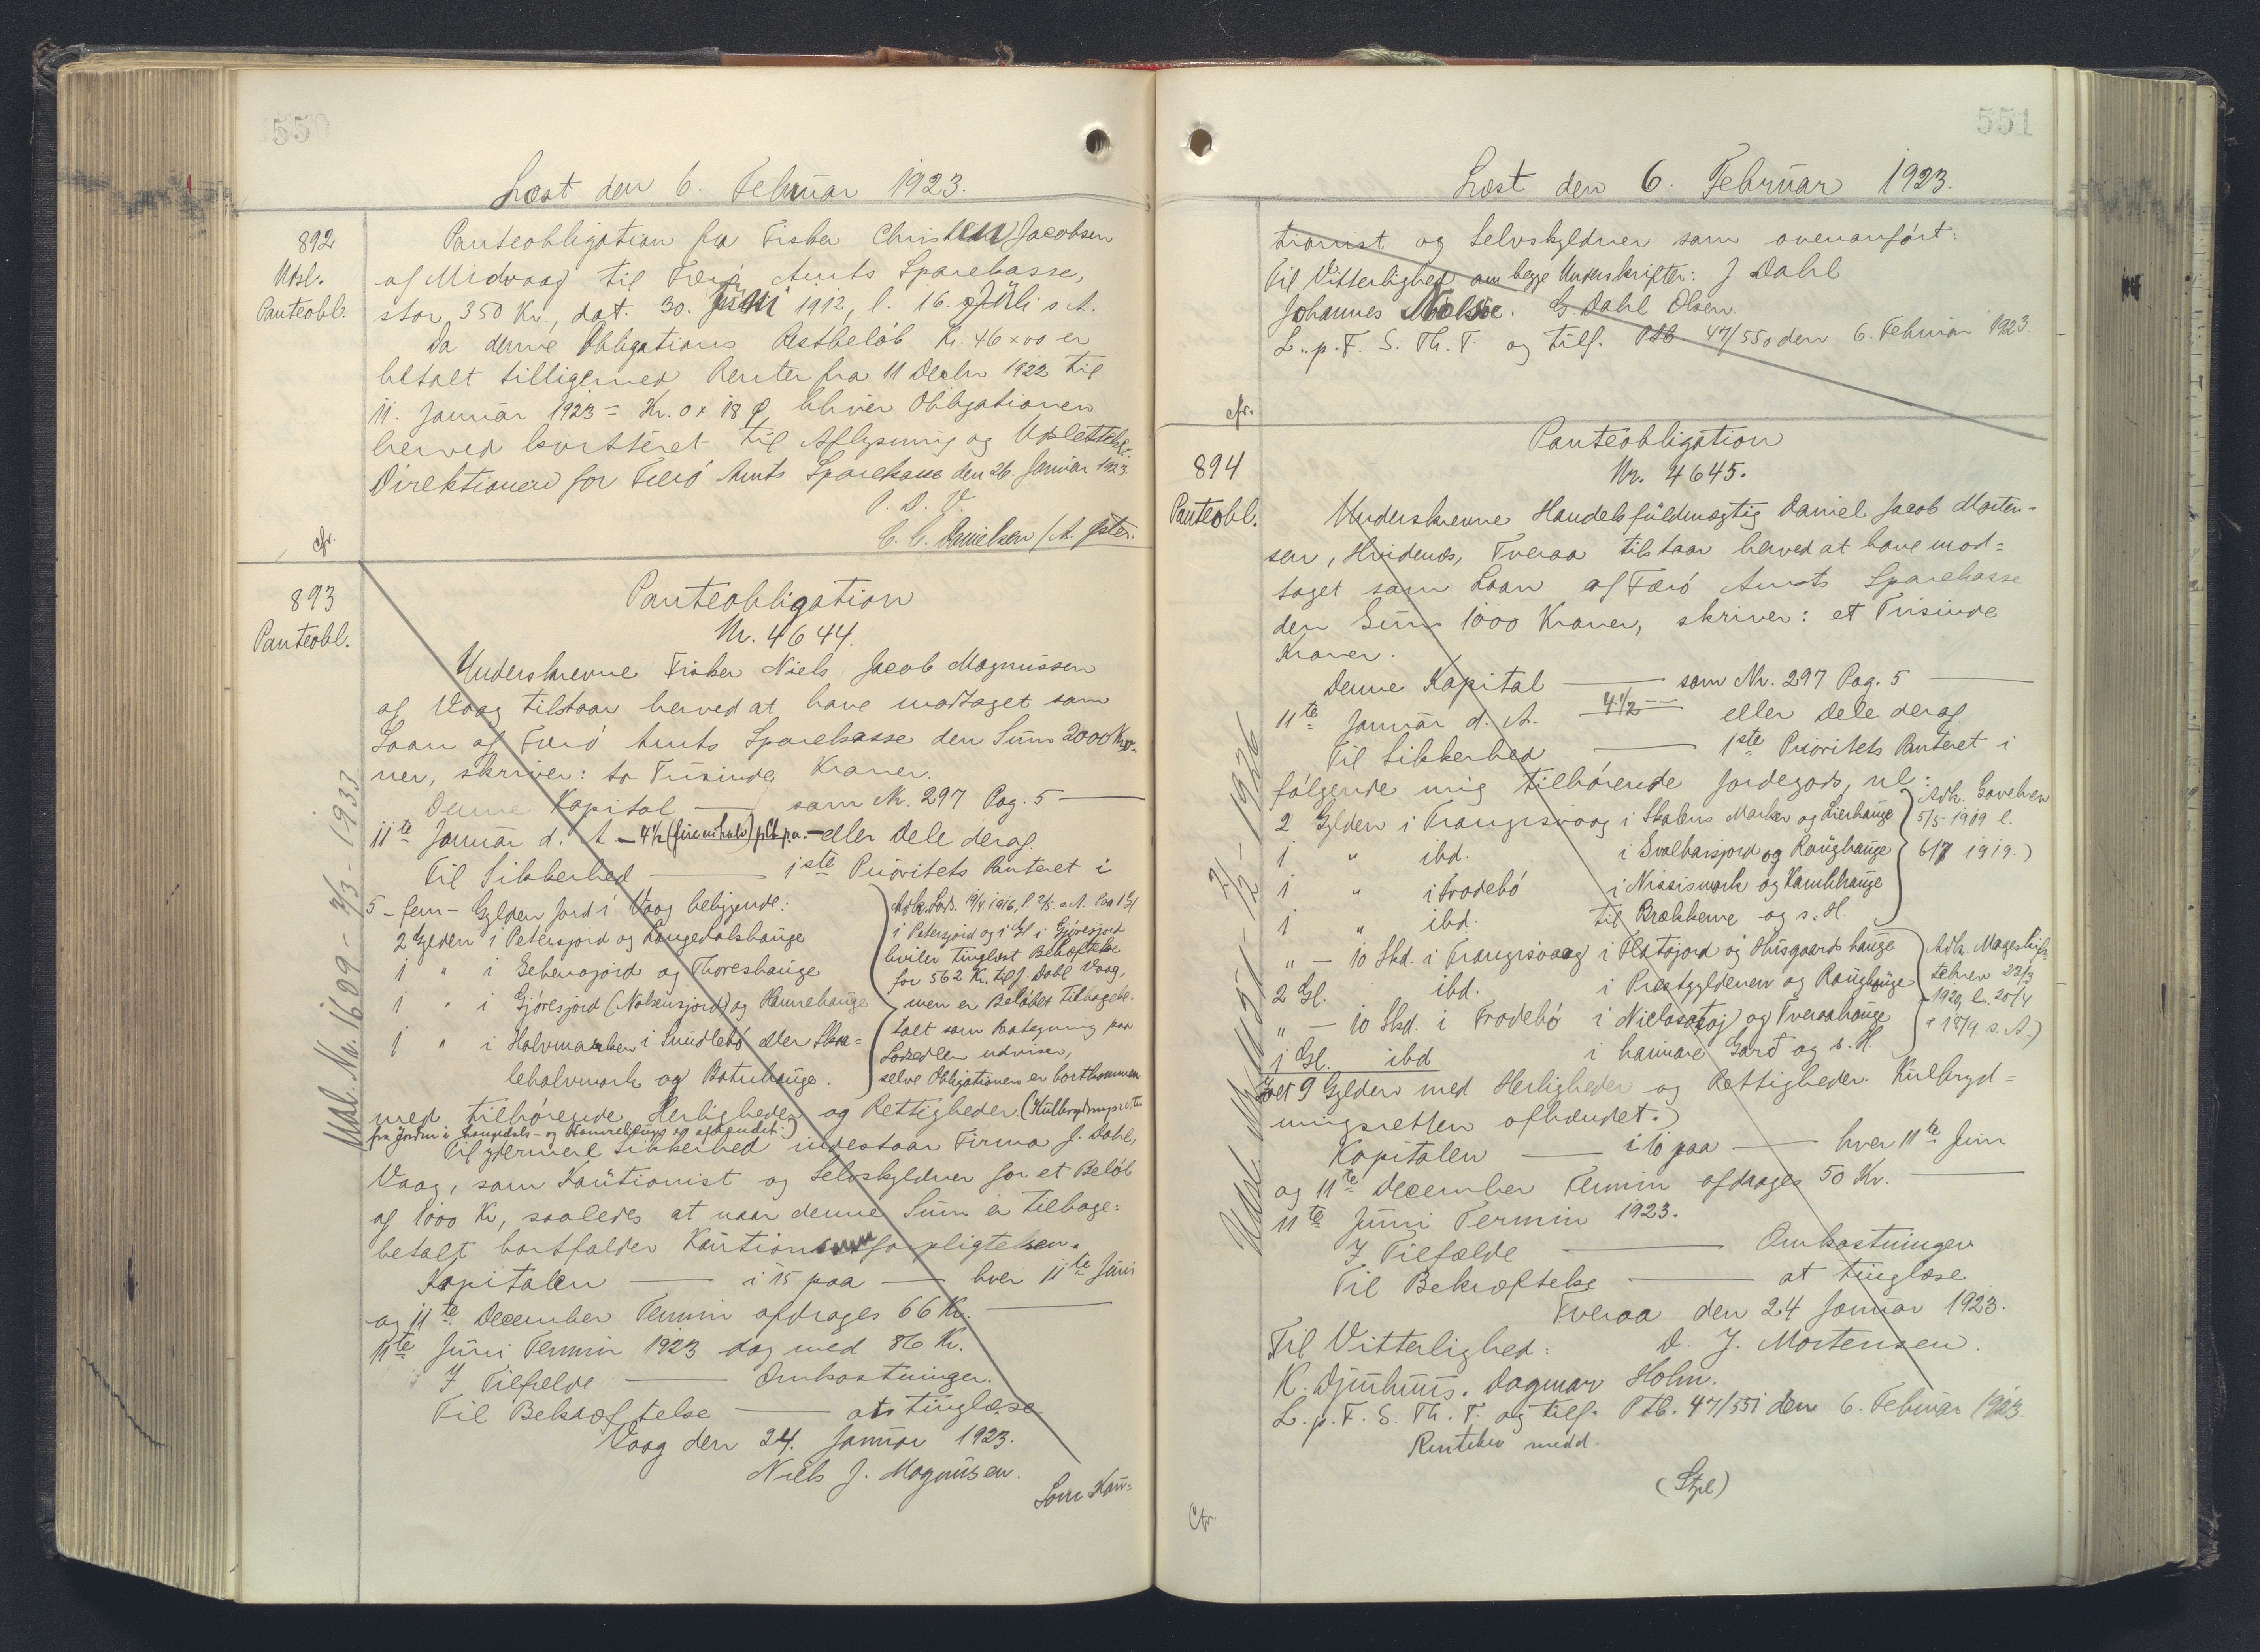 550
Læst den 6. Februar 1923.
892
Udsl.
Panteobl.
Panteobligation fra Fisker Christen Jacobsen
af Midvaag til Færø Amts Sparekasse,
stor 350 Kr., dat. 30. Juni 1912, l. 16. Juli s. A.
Da denne Obligations Restbeløb Kr. 46 x 00 er
betalt tilligemed Renter fra 11 Decbr 1922 til
11. Januar 1923 = Kr. 0 x 18 Ø, bliver Obligationen
herved kvitteret til Aflysning og Udslettelse.
Direktionen for Færø Amts Sparekasse den 26. Januar 1923.
P. D. V.
C. C. Danielsen / A. Øster.
cfr.
893
Panteobl.
Panteobligation
Nr. 4644.
Underskrevne Fisker Niels Jacob Magnussen
af Vaag tilstaar herved at have modtaget som
Laan af Færø Amts Sparekasse den Sum 2000 Kro-
ner, skriver: to Tusinde Kroner.
Denne Kapital — som Nr. 297 Pag. 5 —
11te Januar d. A. — 4½ (fire en halv) pCt. p.a. — eller Dele deraf.
Til Sikkerhed — 1ste Prioritets Panteret i
5 - fem - Gylden Jord i Vaag beliggende:
2 Gylden i Petersjord og Langedalshauge
1 " i Gebensjord og Thoreshauge
1 " i Gjøresjord (Nolsensjord) og Hamrehauge
1 " i Halvmarken i Smidlebø eller Ska=
lehalvmark og Botnhauge.
Adk. Lods. 19/4 1916, l. 2/5 s. A. Paa 1 Gl
i Petersjord og 1 Gl i Gjøresjord
hviler tinglæst Behæftelse
for 562 Kr. til J. Dahl Vaag,
men er Beløbet tilbagebe-
talt som Paategning paa
Lodsedlen udviser,
selve Obligationen er bortkommen
med tilhørende Herligheder og Rettigheder. (Kulbrydningsretten
fra Jorden i Langedals- og Hamrehauge er afhændet.)
Til ydermere Sikkerhed indestaar Firma J. Dahl,
Vaag, som Kautionist og Selvskyldner for et Beløb
af 1000 Kr, saaledes at naar denne Sum er tilbage=
betalt bortfalder Kautionsforpligtelsen.
Kapitalen — i 15 paa — hver 11te Juni
og 11te December Termin afdrages 66 Kr. —
11te Juni Termin 1923 dog med 86 Kr.
I Tilfælde — Omkostninger.
Til Bekræftelse — at tinglæse
Vaag den 24. Januar 1923.
Niels J. Magnusen.
Som Kau=
Udsl. No. 1609 - 7/3 - 1933
551
Læst den 6. Februar 1923.
tionist og Selvskyldner som ovenanført:
Til Vitterlighed om begge Underskrifter: J Dahl
Johannes Nolsøe. G Dahl Olsen.
L. p. F. S. Th. T. og tilf. Ptb 47/550 den 6. Februar 1923
cfr.
894
Panteobl.
Panteobligation
Nr. 4645.
Underskrevne Handelsfuldmægtig Daniel Jacob Morten-
sen, Hvidenæs, Tveraa tilstaar herved at have mod=
taget som Laan af Færø Amts Sparekasse
den Sum 1000 Kroner, skriver: et Tusinde
Kroner.
Denne Kapital — som Nr. 297 Pag. 5 —
11te Januar d. A. — 4½ — eller Dele deraf.
Til Sikkerhed — 1ste Prioritets Panteret i
følgende mig tilhørende Jordegods, nl:
2 Gylden i Trangisvaag i Skalens Marker og Lierhauge
1 " ibd. i Svalbarsjord og Raughauge
1 " i Frodebø i Nissismark og Kambhauge
1 " ibd. til Brækkerne og s. H.
Adk. Gavebrev
5/5 1909 l.
6/7 1919.)
" — 10 Skd. i Trangisvaag i Flatajord og Husgaards hauge
2 Gl. ibd. i Præstgyldenen og Raughauge
" — 10 Skd. i Frodebø i Nielsatøj og Tveraahauge
1 Gl. ibd i hannare Gard og s. H.
Adk. Mageskifte
Lebrev 22/3
1920, l. 20/4
& 18/9 s. A.)
Ialt 9 Gylden med Herligheder og Rettigheder. Kulbryd=
ningsretten afhændet.)
Kapitalen — i 10 paa — hver 11te Juni
og 11te December Termin afdrages 50 Kr. —
11te Juni Termin 1923.
I Tilfælde — Omkostninger
Til Bekræftelse — at tinglæse
Tveraa den 24 Januar 1923.
Til Vitterlighed: D. J. Mortensen.
K. Djurhuus. Dagmar Holm.
L. p. F. S. Th. T. og tilf. Ptb. 47/551 den 6. Februar 1923.
Rentebev medd.
(Stpl)
Cfr.